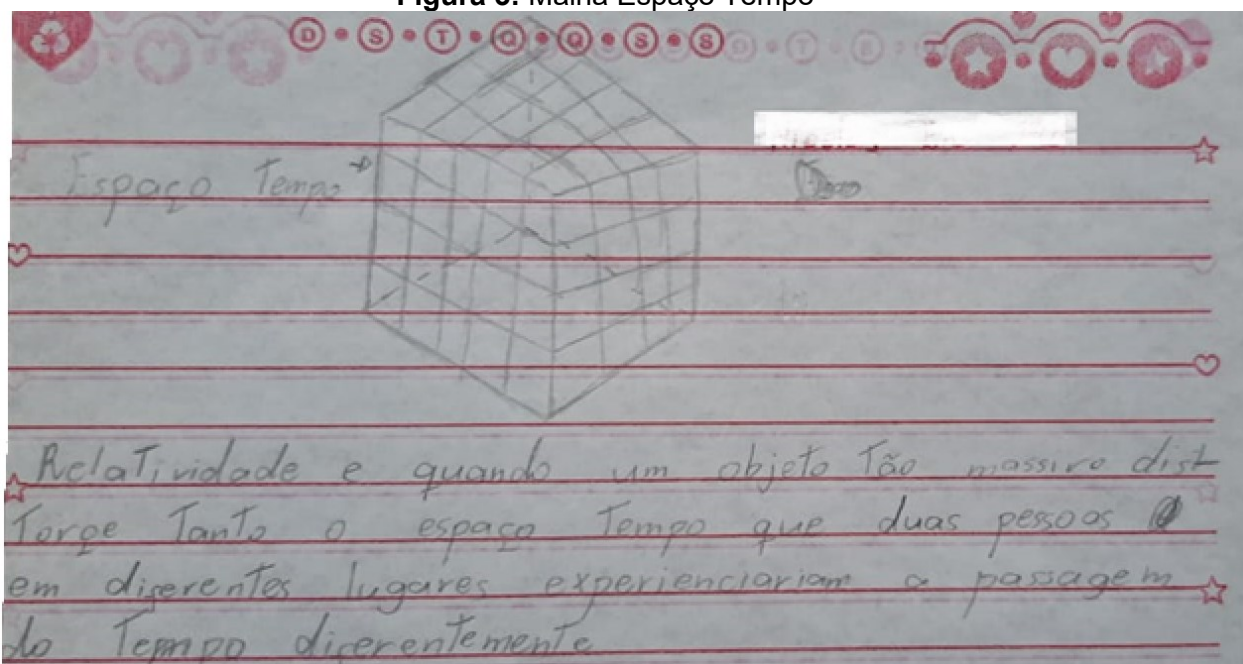 Figura 3: Malha Espaço Tempo
D S T Q Q S S
Espaço Tempo
RelaTividade e quando um objeto Tão massivo dist
Torçe TanTo o espaço Tempo que duas pessoas
em diferenTes lugares experienciariam a passagem
do Tempo diferentemenTe